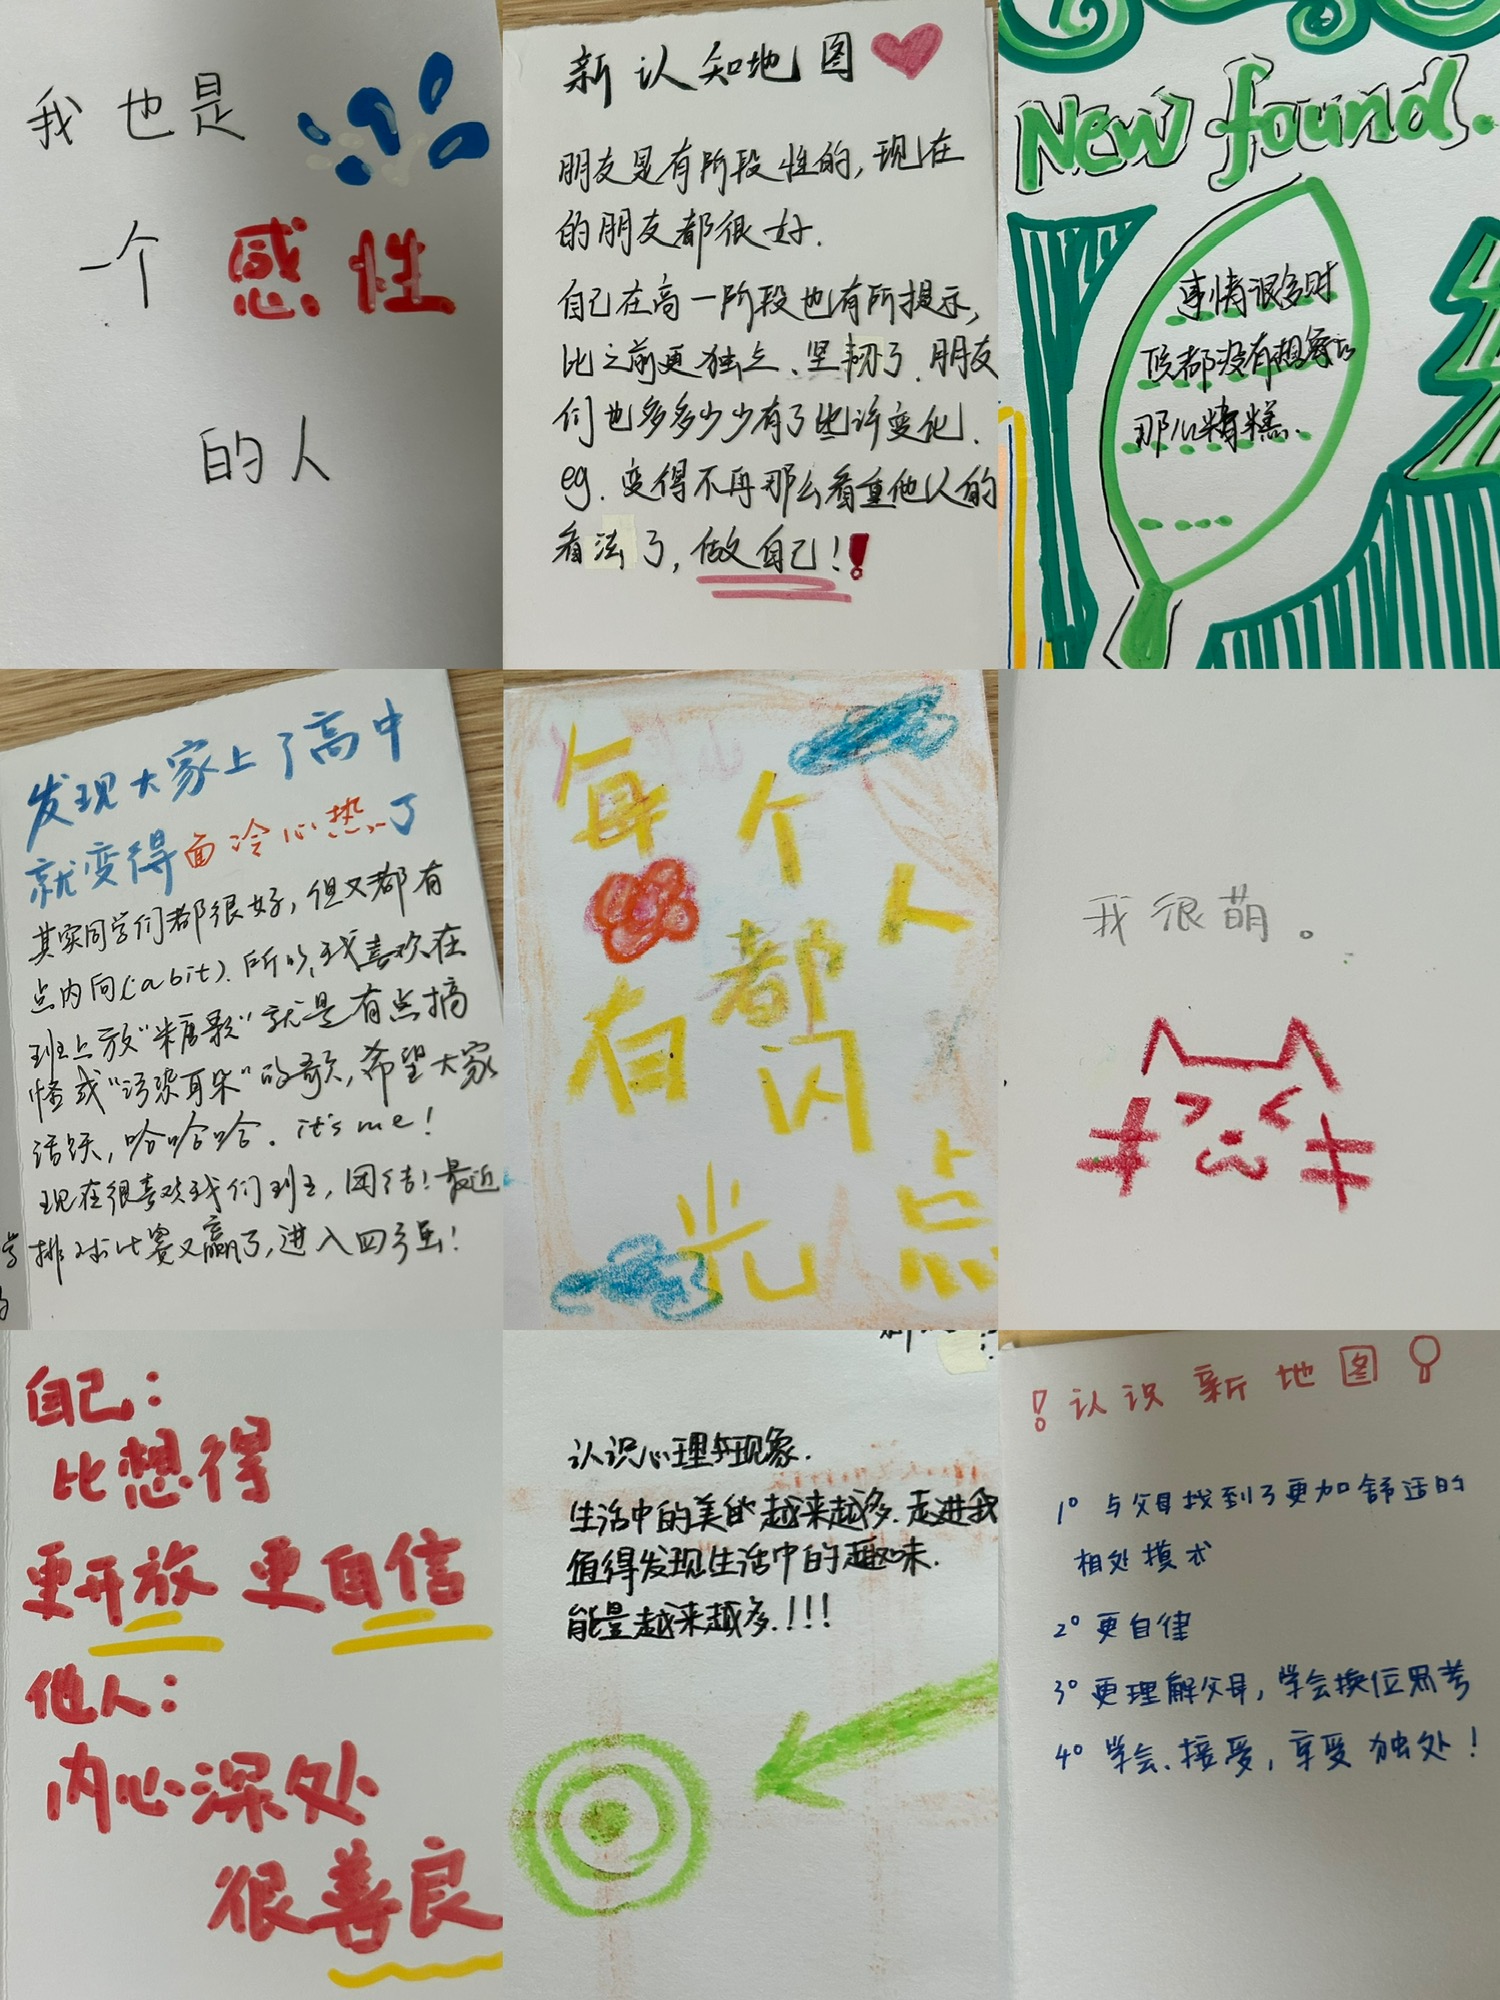 我也是
一个感性
的人
新认知地图
朋友是有阶段性的,现在
的朋友都很好.
自己在高一阶段也有所提示,
比之前更独立、坚韧了.朋友
们也多多少少有了些许变化.
eg.变得不再那么看重他人的
看法了,做自己!!
New found.
事情很多时
候都没有想象的
那么糟糕.
发现大家上了高中
就变得面冷心热了
其实同学们都很好,但又都有
点内向(a bit).所以,我喜欢在
班上放"糖歌"就是有点搞
怪或"污染耳朵"的歌,希望大家
活跃,哈哈哈. it's me!
现在很喜欢我们班,团结!最近
排球比赛又赢了,进入四强!
每个人
都
有闪
光点
我很萌。
自己:
比想得
更开放 更自信
他人:
内心深处
很善良
认识心理与现象.
生活中的美能越来越多.走进我
值得发现生活中的趣味.
能量越来越多.!!!
!认识新地图
1° 与父母找到了更加舒适的
相处模式
2° 更自律
3° 更理解父母,学会换位思考
4° 学会、接受,享受独处!